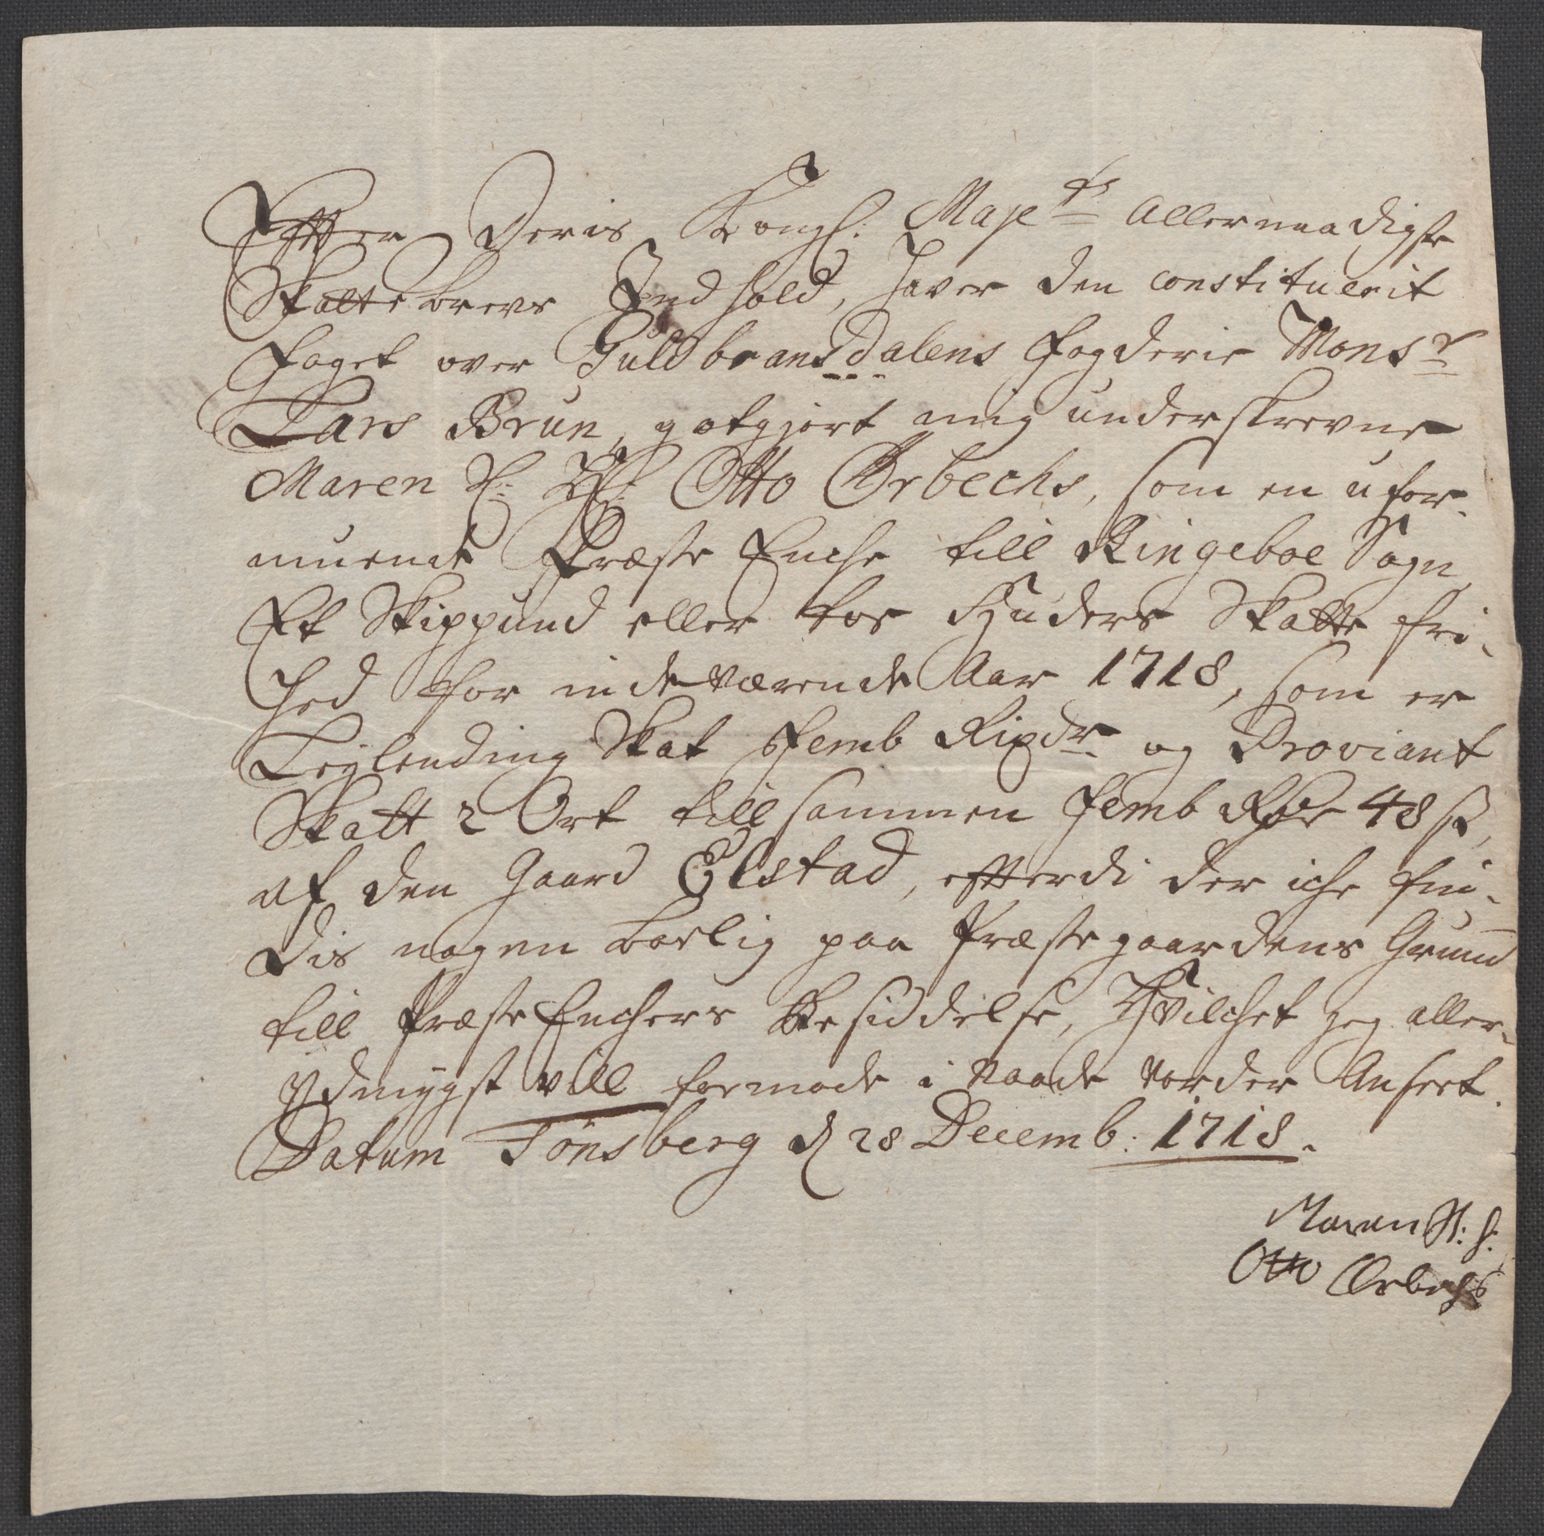 Effter Deris Kongl: Maje^ts Allernaadigste
Skattebrevs Indhold, haver den constituerit
foget over Guldbransdalens fogderie Mons^r
Lars Brun, gotgjort mig underskrevne
Maren Sl: Otto Ørbechs, som en ufor-
muende Præste Enche till Ringeboe Sogn,
Et Skippund eller toe Huders Skatte fri-
hed for indeværende Aar 1718, som er
Leylending Skat Femb Rixdr og Proviant
Skatt 2 Ort tillsammen femb Rdr 48 s,
af den Gaard Elstad, efterdi der iche fin-
dis nogen boelig paa Præstegaardens Grund
till Præste Enchers Besiddelse, Hvilchet jeg aller-
ydmygst vill formode i Naade vorder Anseet.
Datum Tønsberg d 28 Decemb: 1718.
Maren Sl: H:
Otto Ørbechs